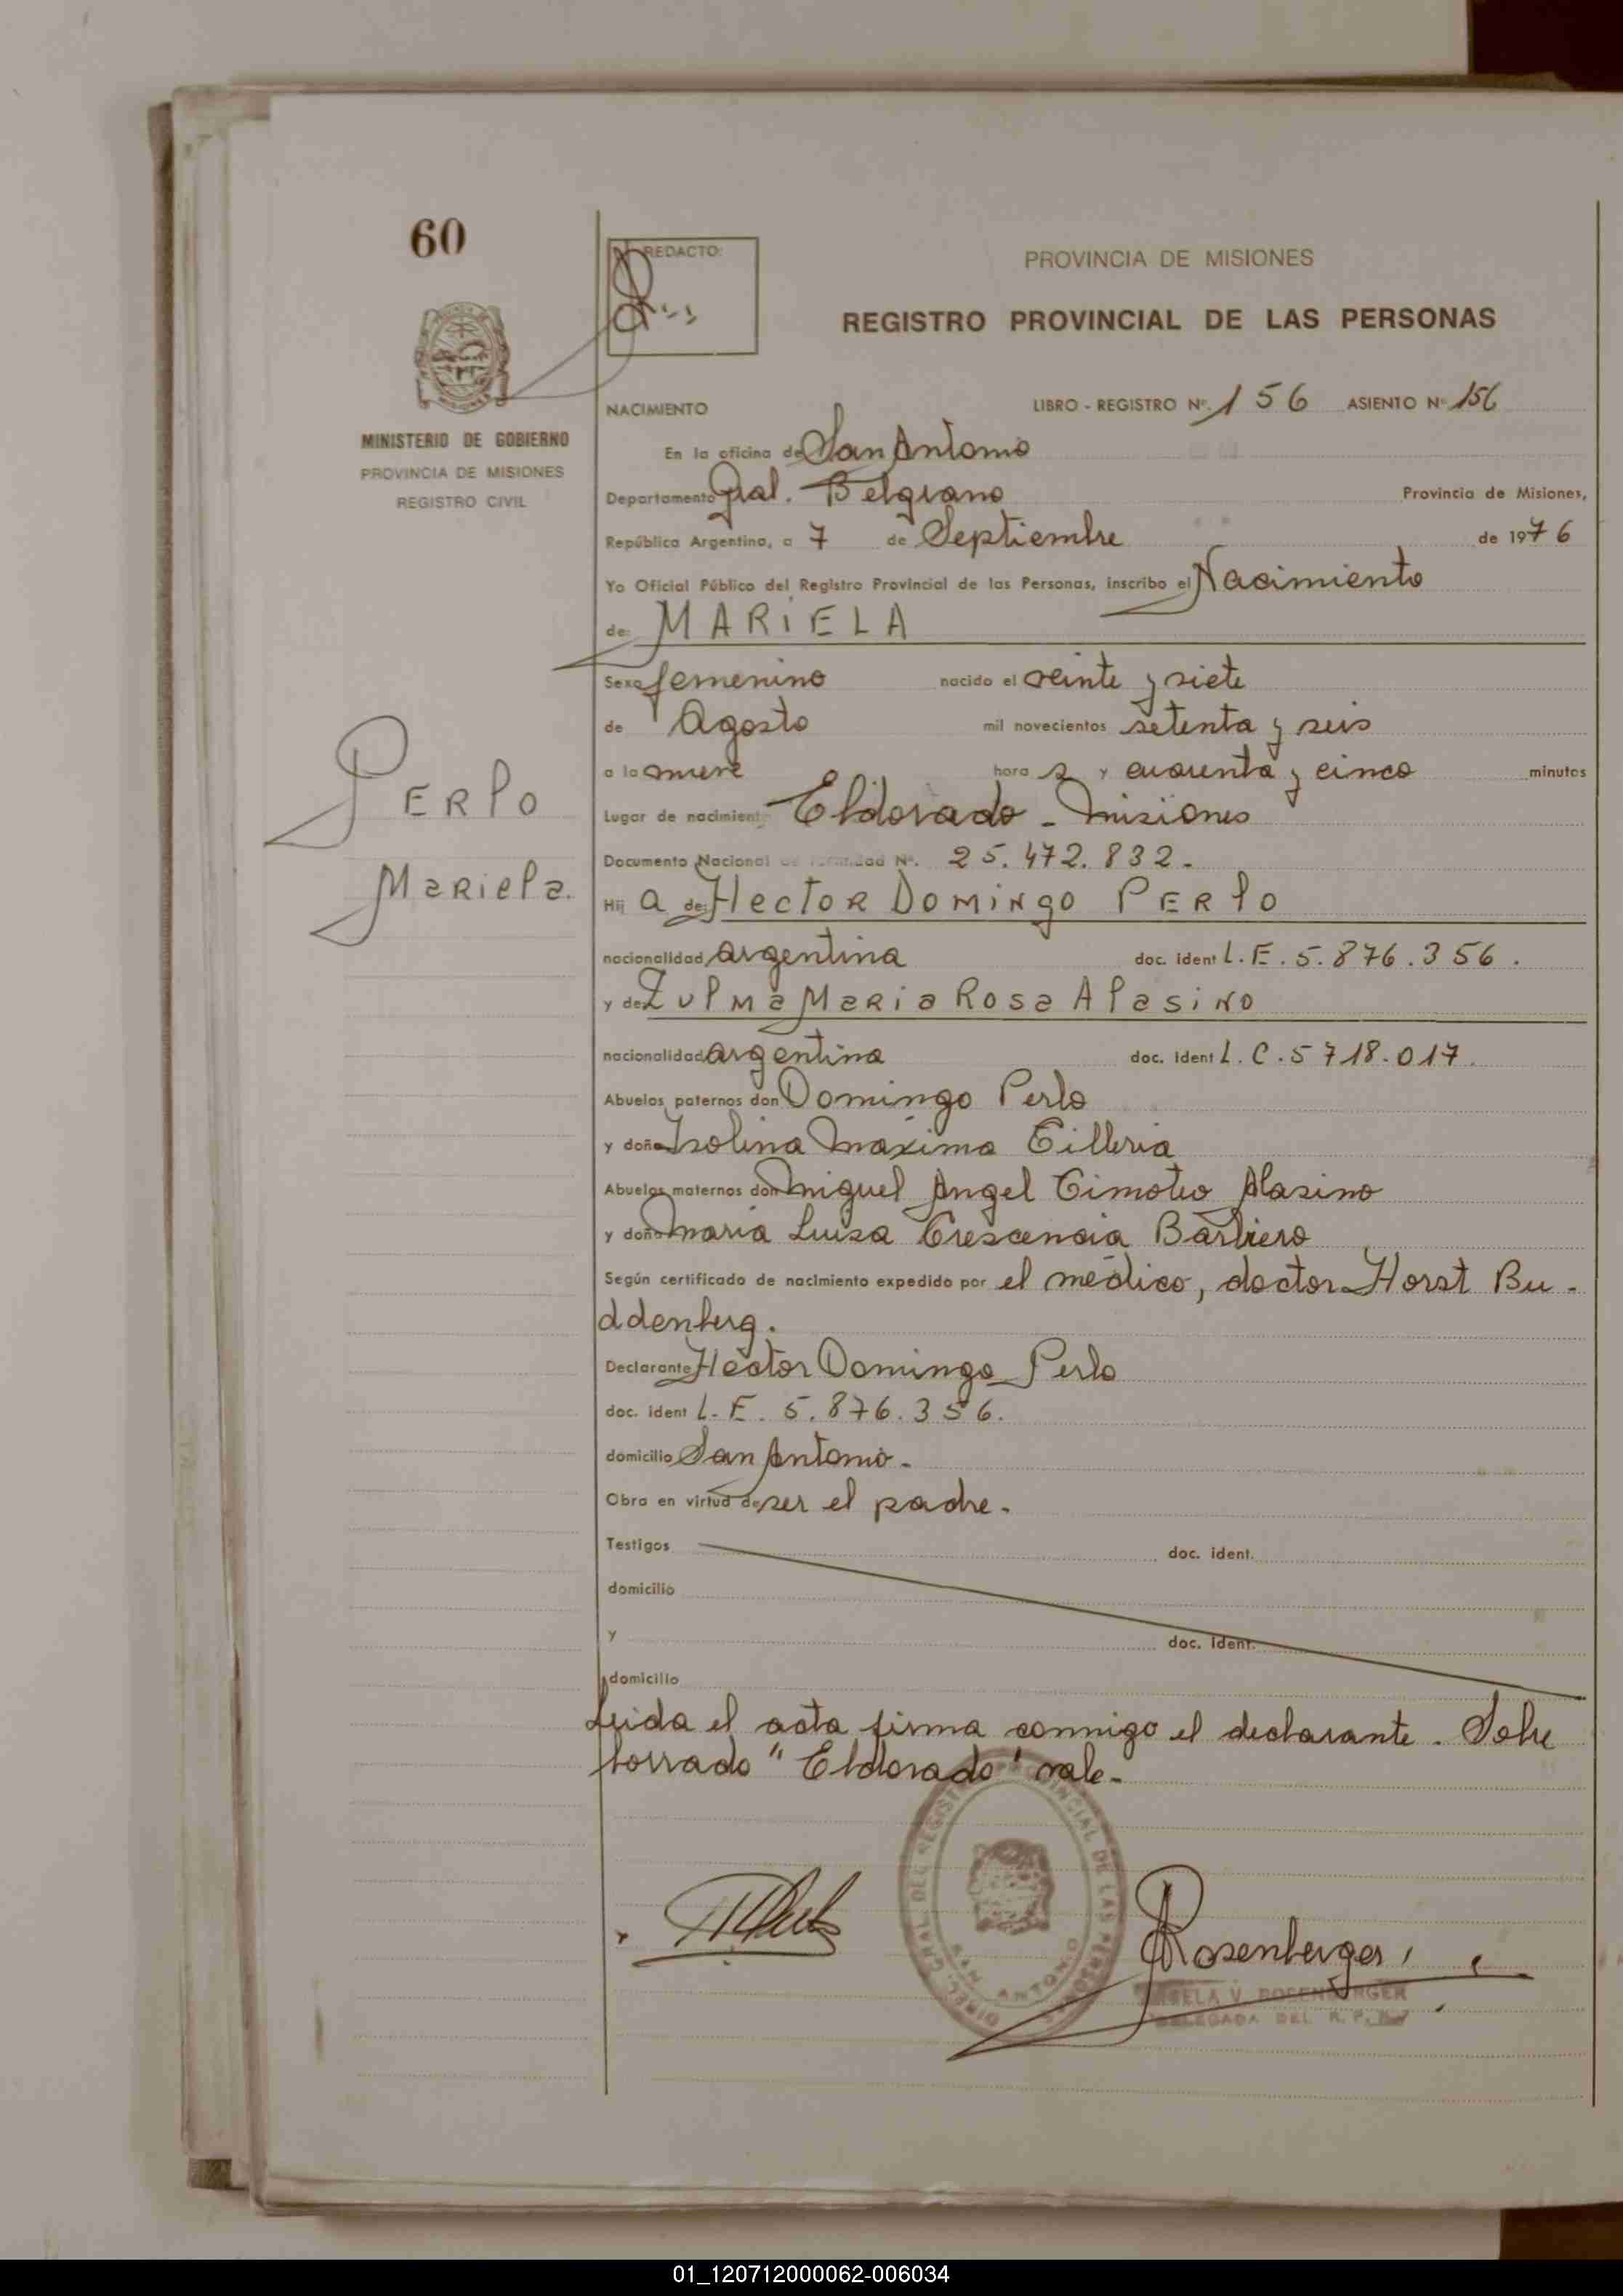 60
REDACTO:
PROVINCIA DE MISIONES
REGISTRO PROVINCIAL DE LAS PERSONAS
MINISTERIO DE GOBIERNO
PROVINCIA DE MISIONES
REGISTRO CIVIL
NACIMIENTO LIBRO - REGISTRO Nº. 156 ASIENTO Nº 156
En la oficina de San Antonio
Departamento Gral. Belgrano Provincia de Misiones,
República Argentina, a 7 de Septiembre de 1976
Yo Oficial Público del Registro Provincial de las Personas, inscribo el Nacimiento
de: MARIELA
Sexo femenino nacido el veinte y siete
de Agosto mil novecientos setenta y seis
a la nueve hora s y cuarenta y cinco minutos
Perlo
Mariela.
Lugar de nacimiento Eldorado - Misiones
Documento Nacional de Identidad Nº. 25.472.832.
Hij a de: Hector Domingo Perlo
nacionalidad argentina doc. ident L.E. 5.876.356.
y de: Zulma Maria Rosa Alasino
nacionalidad argentina doc. ident L.C. 5718.017.
Abuelos paternos don Domingo Perlo
y doña Isolina Maxima Tilleria
Abuelos maternos don Miguel Angel Timoteo Alasino
y doña Maria Luisa Crescencia Barbiero
Según certificado de nacimiento expedido por el médico, doctor Horst Bu-
ddenberg.
Declarante Hector Domingo Perlo
doc. ident L.E. 5.876.356.
domicilio San Antonio.
Obra en virtud de ser el padre.
Testigos doc. ident.
domicilio
y doc. ident.
domicilio
Leida el acta firma conmigo el declarante. Sobre
borrado "Eldorado" vale-
DIREC. GRAL. DEL REGISTRO PROVINCIAL DE LAS PERSONAS
SAN ANTONIO
Rosenberger
V. ROSENBERGER
DELEGADA DEL R. P.
01_120712000062-006034